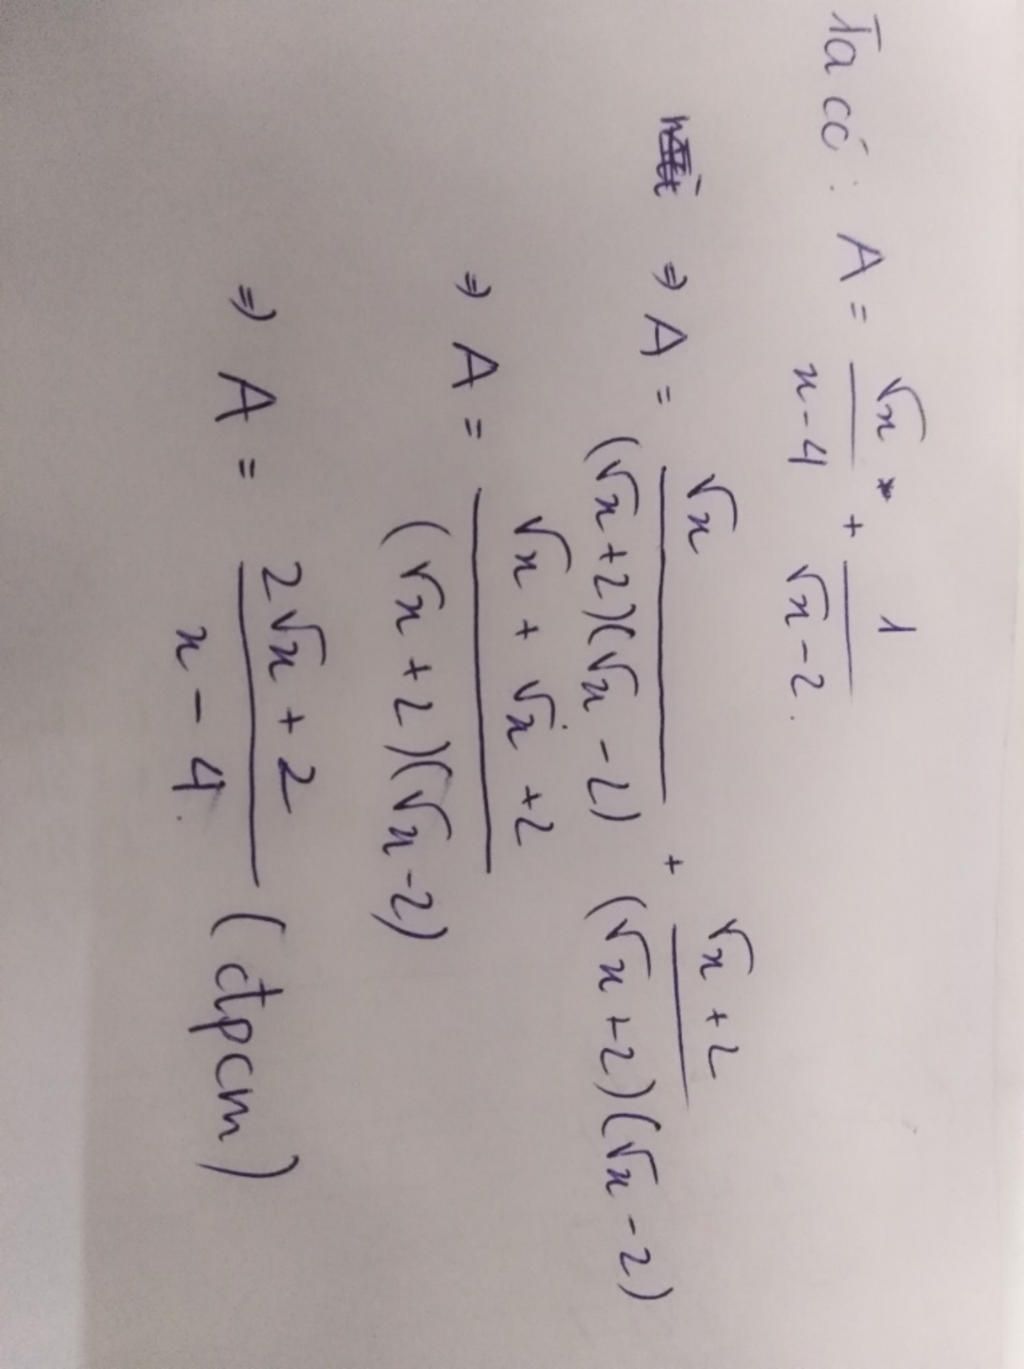 Ta có: A = √x / (x-4) + 1 / (√x-2).
⇒ A = √x / ((√x+2)(√x-2)) + (√x+2) / ((√x+2)(√x-2))
⇒ A = (√x + √x +2) / ((√x+2)(√x-2))
⇒ A = (2√x+2) / (x-4) (đpcm)